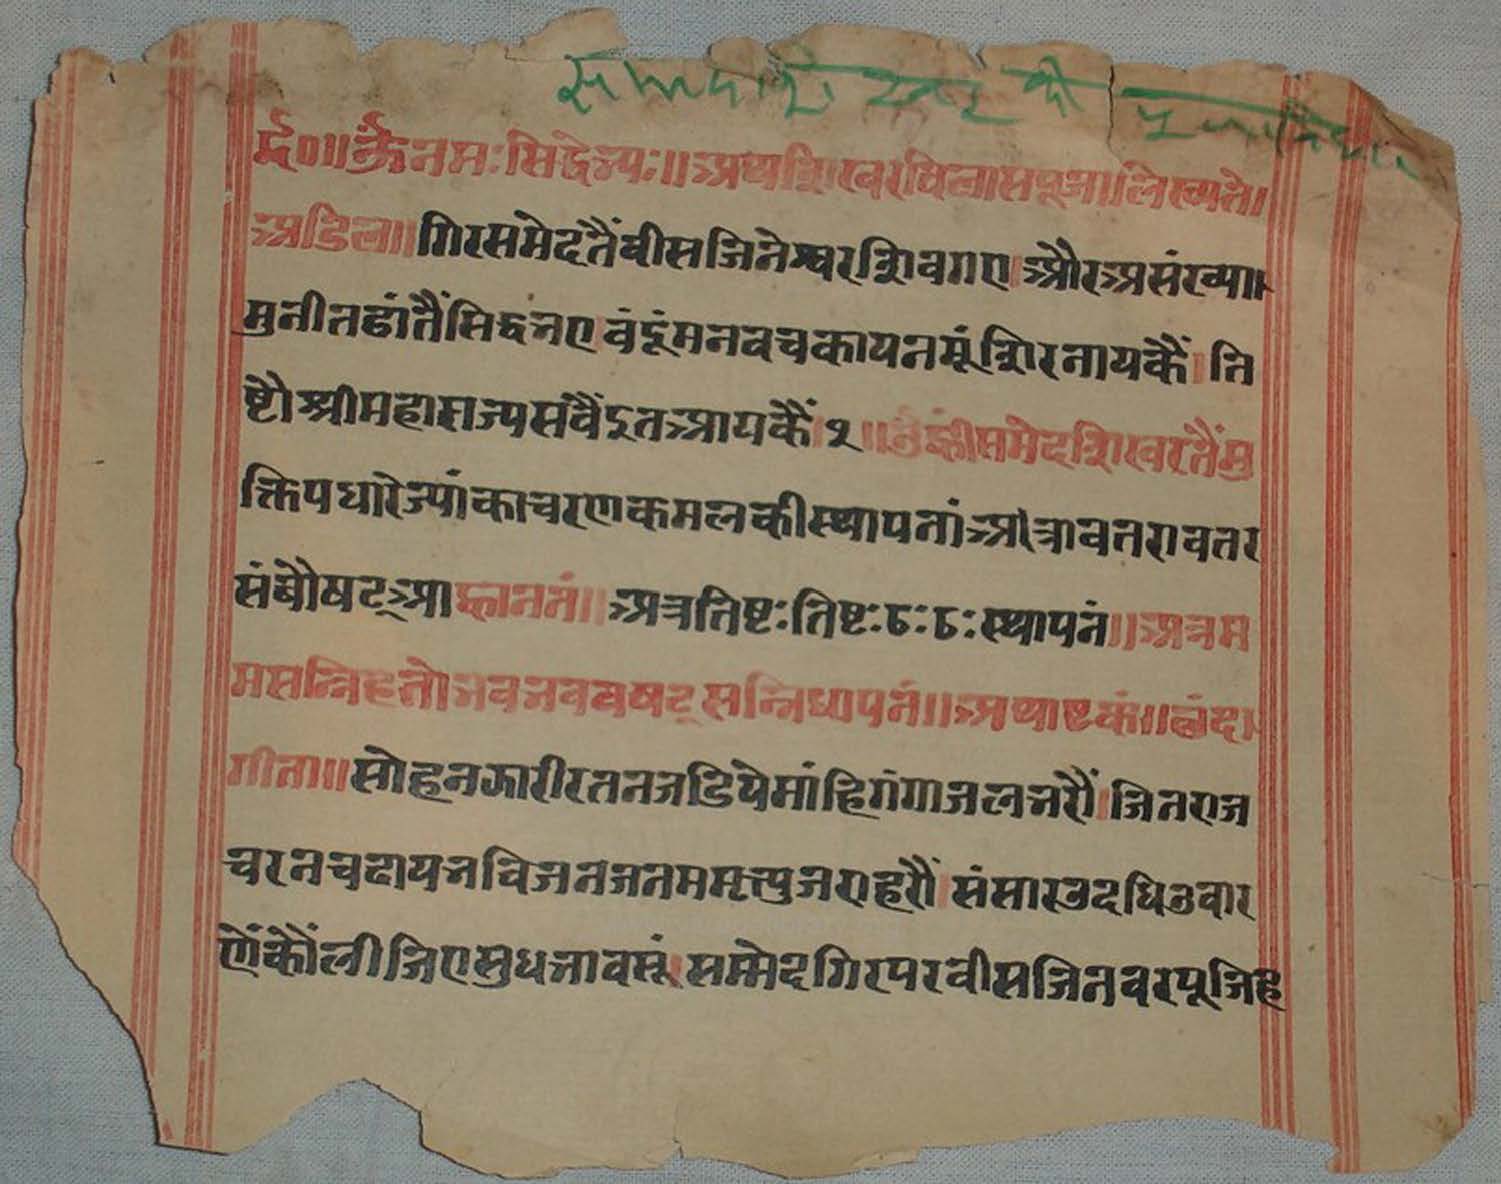 सम्मेद शिखर की पूजा
र्द॥०॥ॐनमःसिद्धेभ्यः॥अथशिखरविलासपूजा॥लिख्यते॥
अडिल॥गिरसमेदतैंवीसजिनेश्वरशिवगए।औरअसंख्या।
मुनीतहांतैंसिद्धभए।वंदूंमनवचकायनमूंशिरनायकैं।ति
ष्टौश्रीमहाराज्यसंवैंइतआयकैं।१॥ॐह्रींसमेदशिखरतैंमु
क्तिपधारेज्यांकाचरणकमलकीस्थापनां।अत्रावतरावतर
संबौषट्आह्वाननं॥अत्रतिष्टःतिष्टःठःठःस्थापनं॥अत्रम
मसन्निहतोभवभवबषट्सन्निध्यपनं॥अथाष्टकं॥छंदा
गीता॥सोहनझारीरतनजडियेमांहिगंगाजलभरौं।जिनराज
चरनचढायभविजनजनममृत्युजराहरौं।संसारउदधिउवार
णेंकौंलीजिएसुधभावसूं।सम्मेदगिरपरवीसजिनवरपूजिह